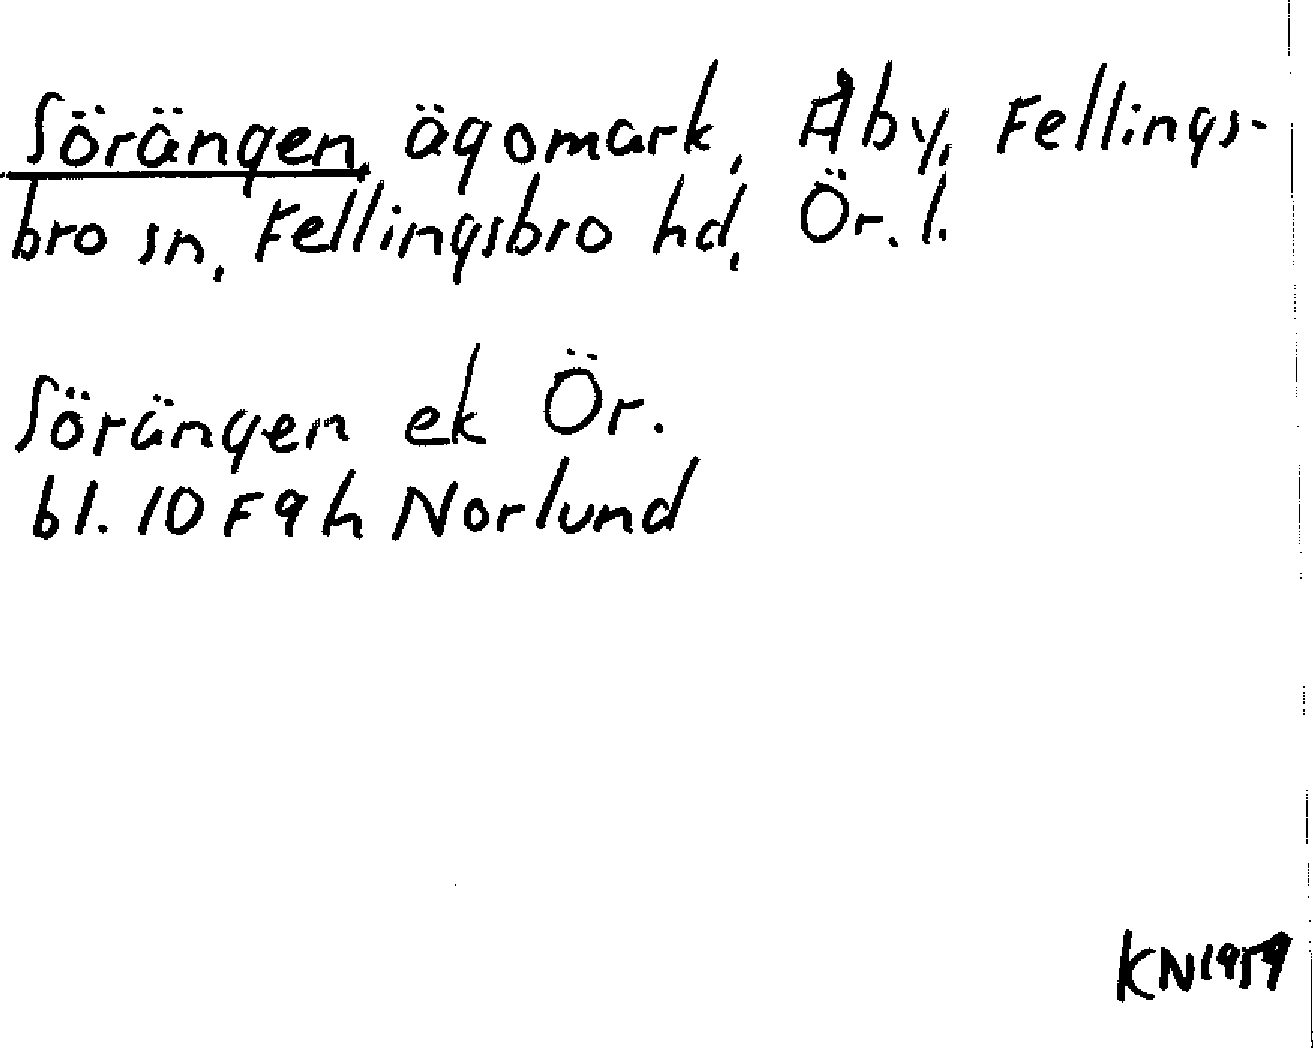 Sörängen, ägomark, Åby, Fellings-
bro sn, Fellingsbro hd, Ör. l.
Sörängen ek Ör.
bl. 10 F 9 h Norlund
KN 1959